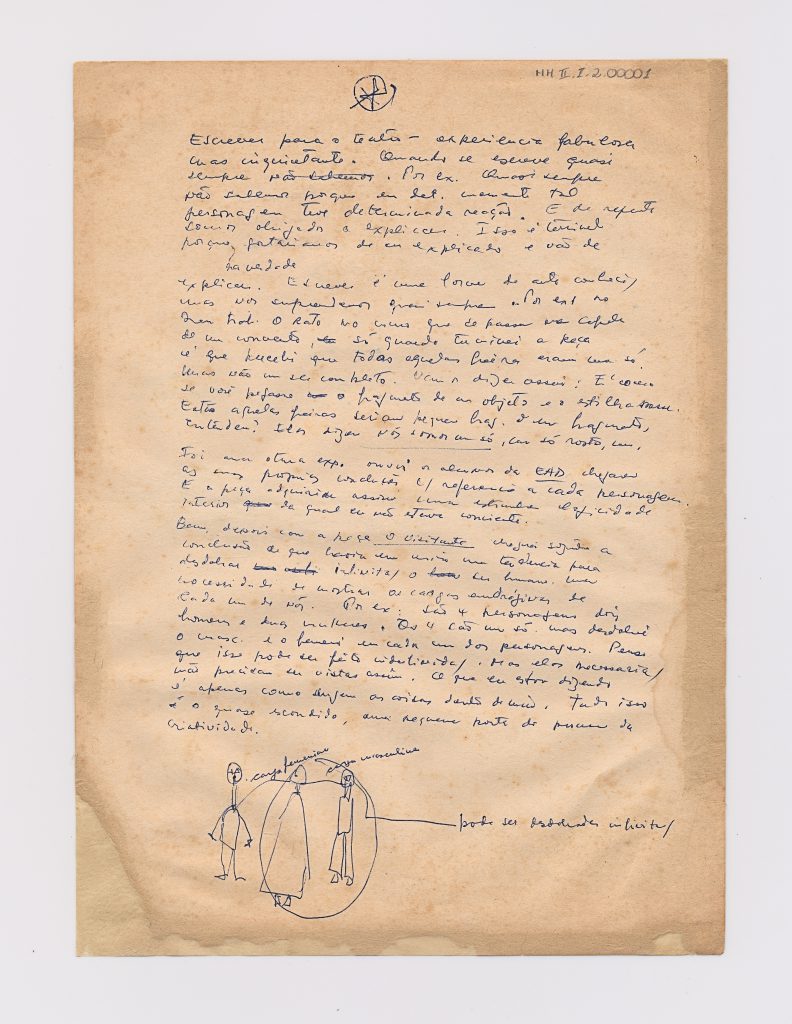 HH II.I.2.00001
Escrever para o teatro - experiencia fabulosa
mas inquietante. Quando se escreve quasi
sempre não sabemos. Por ex. Quasi sempre
não sabemos porque em det. momento tal
personagem teve determinada reação. E de repente
somos obrigados a explicar. Isso é terrivel
porque gostariamos de ser explicados e não de
na verdade
explicar. Escrever é uma forma de auto conheci/
mas nos surprendemos quasi sempre. Por ex: no
meu trab. O Rato no muro que se passa na capela
de um convento só quando terminei a peça
é que percebi que todas aquelas freiras eram uma só.
mas não um ser completo. Vamos dizer assim: É como
se você pegasse o fragmento de um objeto e o estilhassasse.
Então aquelas freiras seriam pequenos frag. de um fragmento,
entendem? Elas dizem nós somos um só, um só rosto, um.
Foi uma otima exp. ouvir os alunos da EAD chegarem
as suas proprias conclusões c/ referencia a cada personagem.
E a peça adquiriu assim uma estranha elasticidade
interior da qual eu não estava consciente.
Bem, depois com a peça O visitante cheguei a
conclusão de que havia em mim uma tendencia para
desdobrar infinita/ o ser humano. Uma
necessidade de mostrar as cargas de
cada um de nós. Por ex: são 4 personagens dois
homens e duas mulheres. Os 4 são um só. mas desdobrei
o masc. e o femini em cada um dos personagens. Penso
que isso pode ser feito indefinida/. Mas elas necessaria/
não precisam ser vistas assim. O que eu estou dizendo
é, apenas como surgem as coisas dentro de mim. Tudo isso
é o quase escondido, uma pequena parte do processo da
criatividade.
carga feminina
carga masculina
pode ser desdobrado infinita/